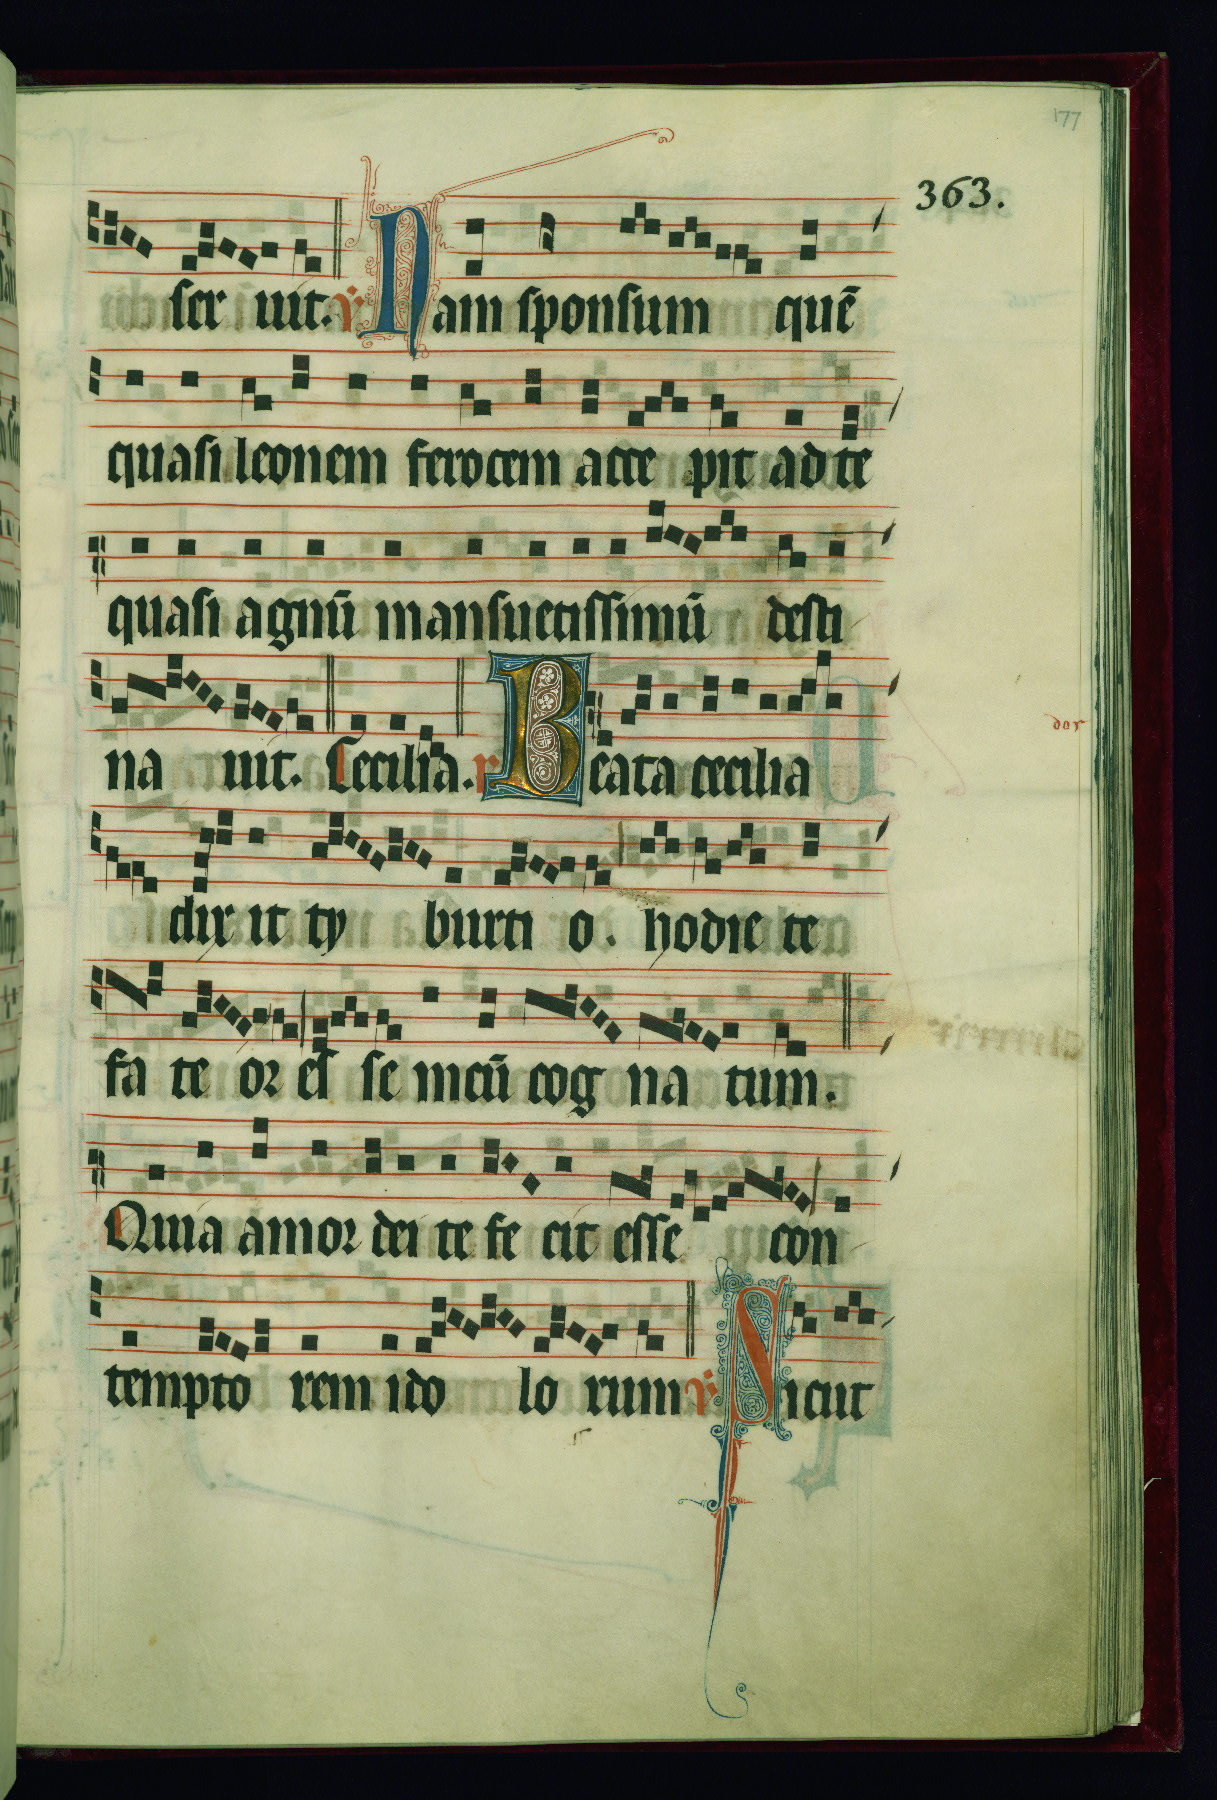 177
363.
ser uit. ℣ Nam sponsum quē
quasi leonem ferocem acce pit ad te
quasi agnū mansuetissimū desti
na uit. Cecilia. r Beata cecilia
dix it ty burti o. hodie te
fa te or es se meū cog na tum.
Quia amor dei te fe cit esse con
tempto rem ido lo rum ℣ Sicut